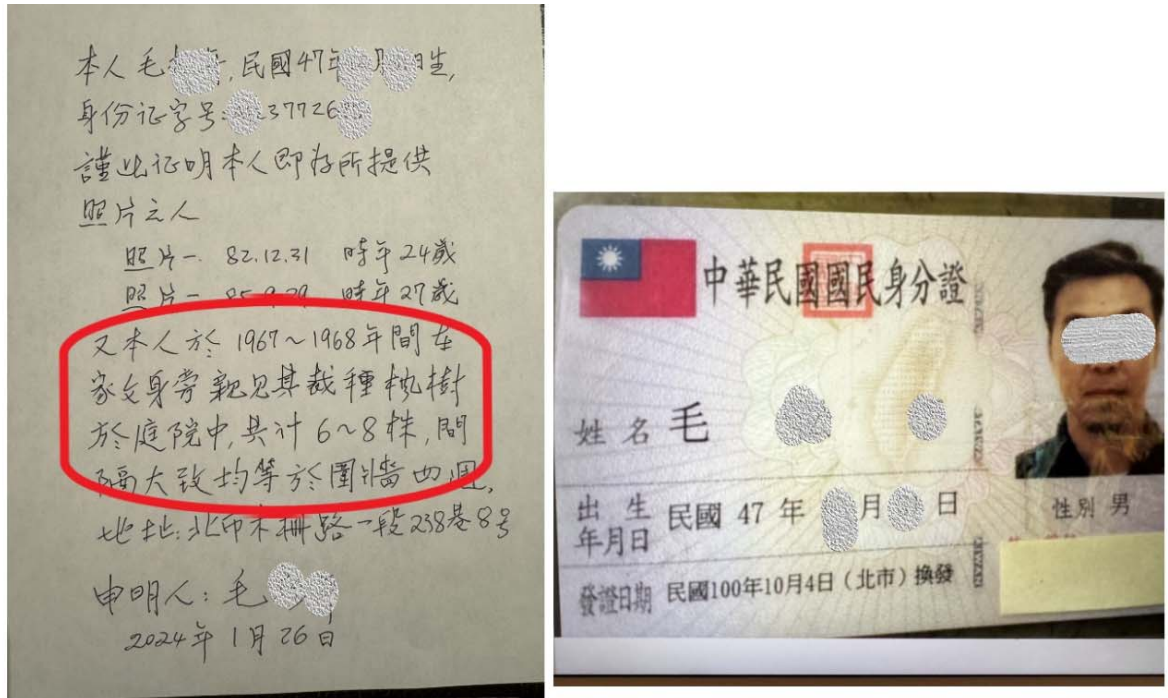 本人 毛 ,民國47年 月 日生,
身份证字号: 237726
謹此证明本人即为所提供
照片之人
照片一. 82.12.31 時年24歲
照片 85.9.29 時年27歲
又本人於 1967~1968年間在
家父身旁親見其栽種枫樹
於庭院中,共计 6~8株,間
隔大致均等於圍牆四週,
地址:北市木柵路一段238巷8号
申明人:毛
2024年1月26日
中華民國國民身分證
姓名 毛
出生年月日 民國 47 年 月 日 性別 男
發證日期 民國100年10月4日(北市)換發